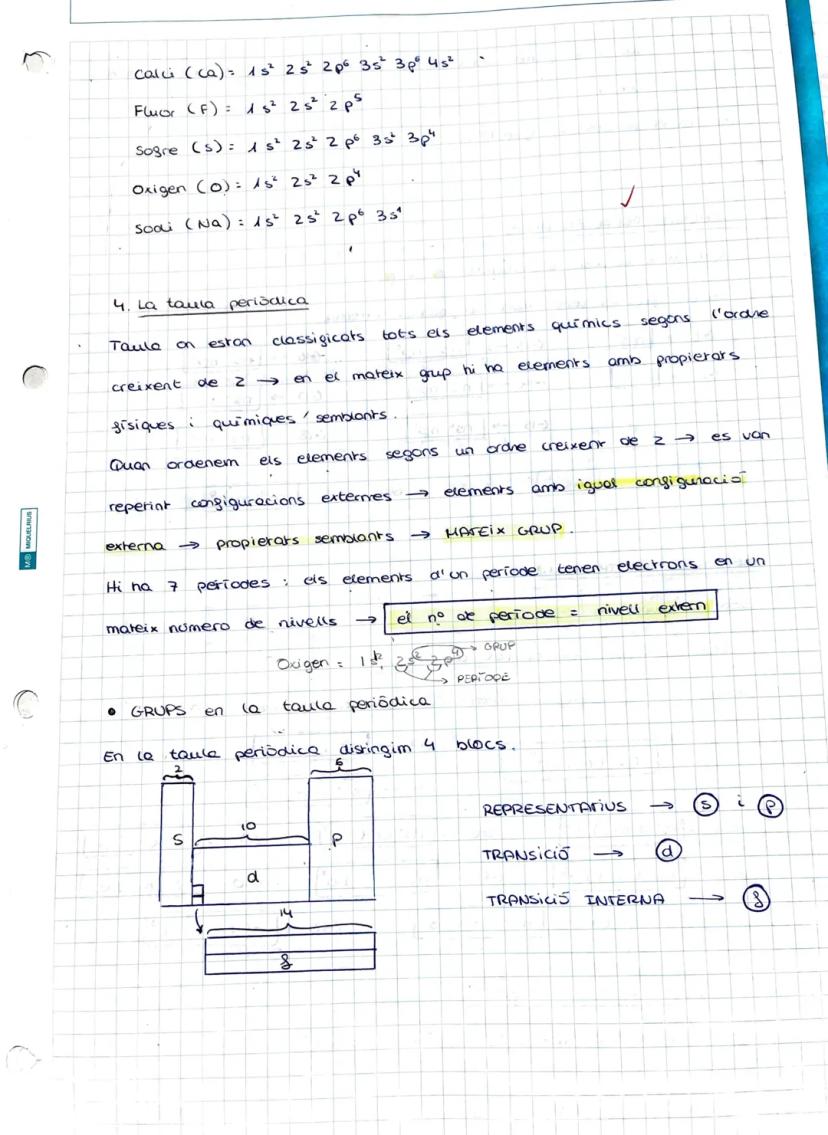 Calci (Ca) = 1s² 2s² 2p⁶ 3s² 3p⁶ 4s²
Fluor (F) = 1s² 2s² 2p⁵
Sofre (S) = 1s² 2s² 2p⁶ 3s² 3p⁴
Oxigen (O) = 1s² 2s² 2p⁴
Sodi (Na) = 1s² 2s² 2p⁶ 3s¹
4. La taula periòdica
Taula on estan classificats tots els elements químics segons l'ordre
creixent de Z → en el mateix grup hi ha elements amb propietats
físiques i químiques semblants.
Quan ordenem els elements segons un ordre creixent de Z → es van
repetint configuracions externes → elements amb igual configuració
externa → propietats semblants → MATEIX GRUP.
Hi ha 7 períodes : els elements d'un període tenen electrons en un
mateix número de nivells → el nº de període = nivell extern
Oxigen = 1s² 2s² 2p⁴ → GRUP
→ PERÍODE
• GRUPS en la taula periòdica
En la taula periòdica distingim 4 blocs.
2
6
S
10
P
d
14
f
REPRESENTATIUS → s i p
TRANSICIÓ → d
TRANSICIÓ INTERNA → f
MR MIQUELRIUS